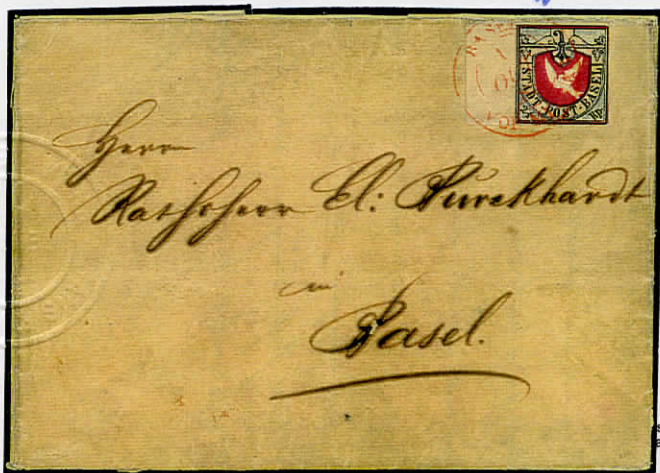 BASEL
STADT-POST-BASEL
Herrn
Rathsherr El: Burckhardt
in
Basel.